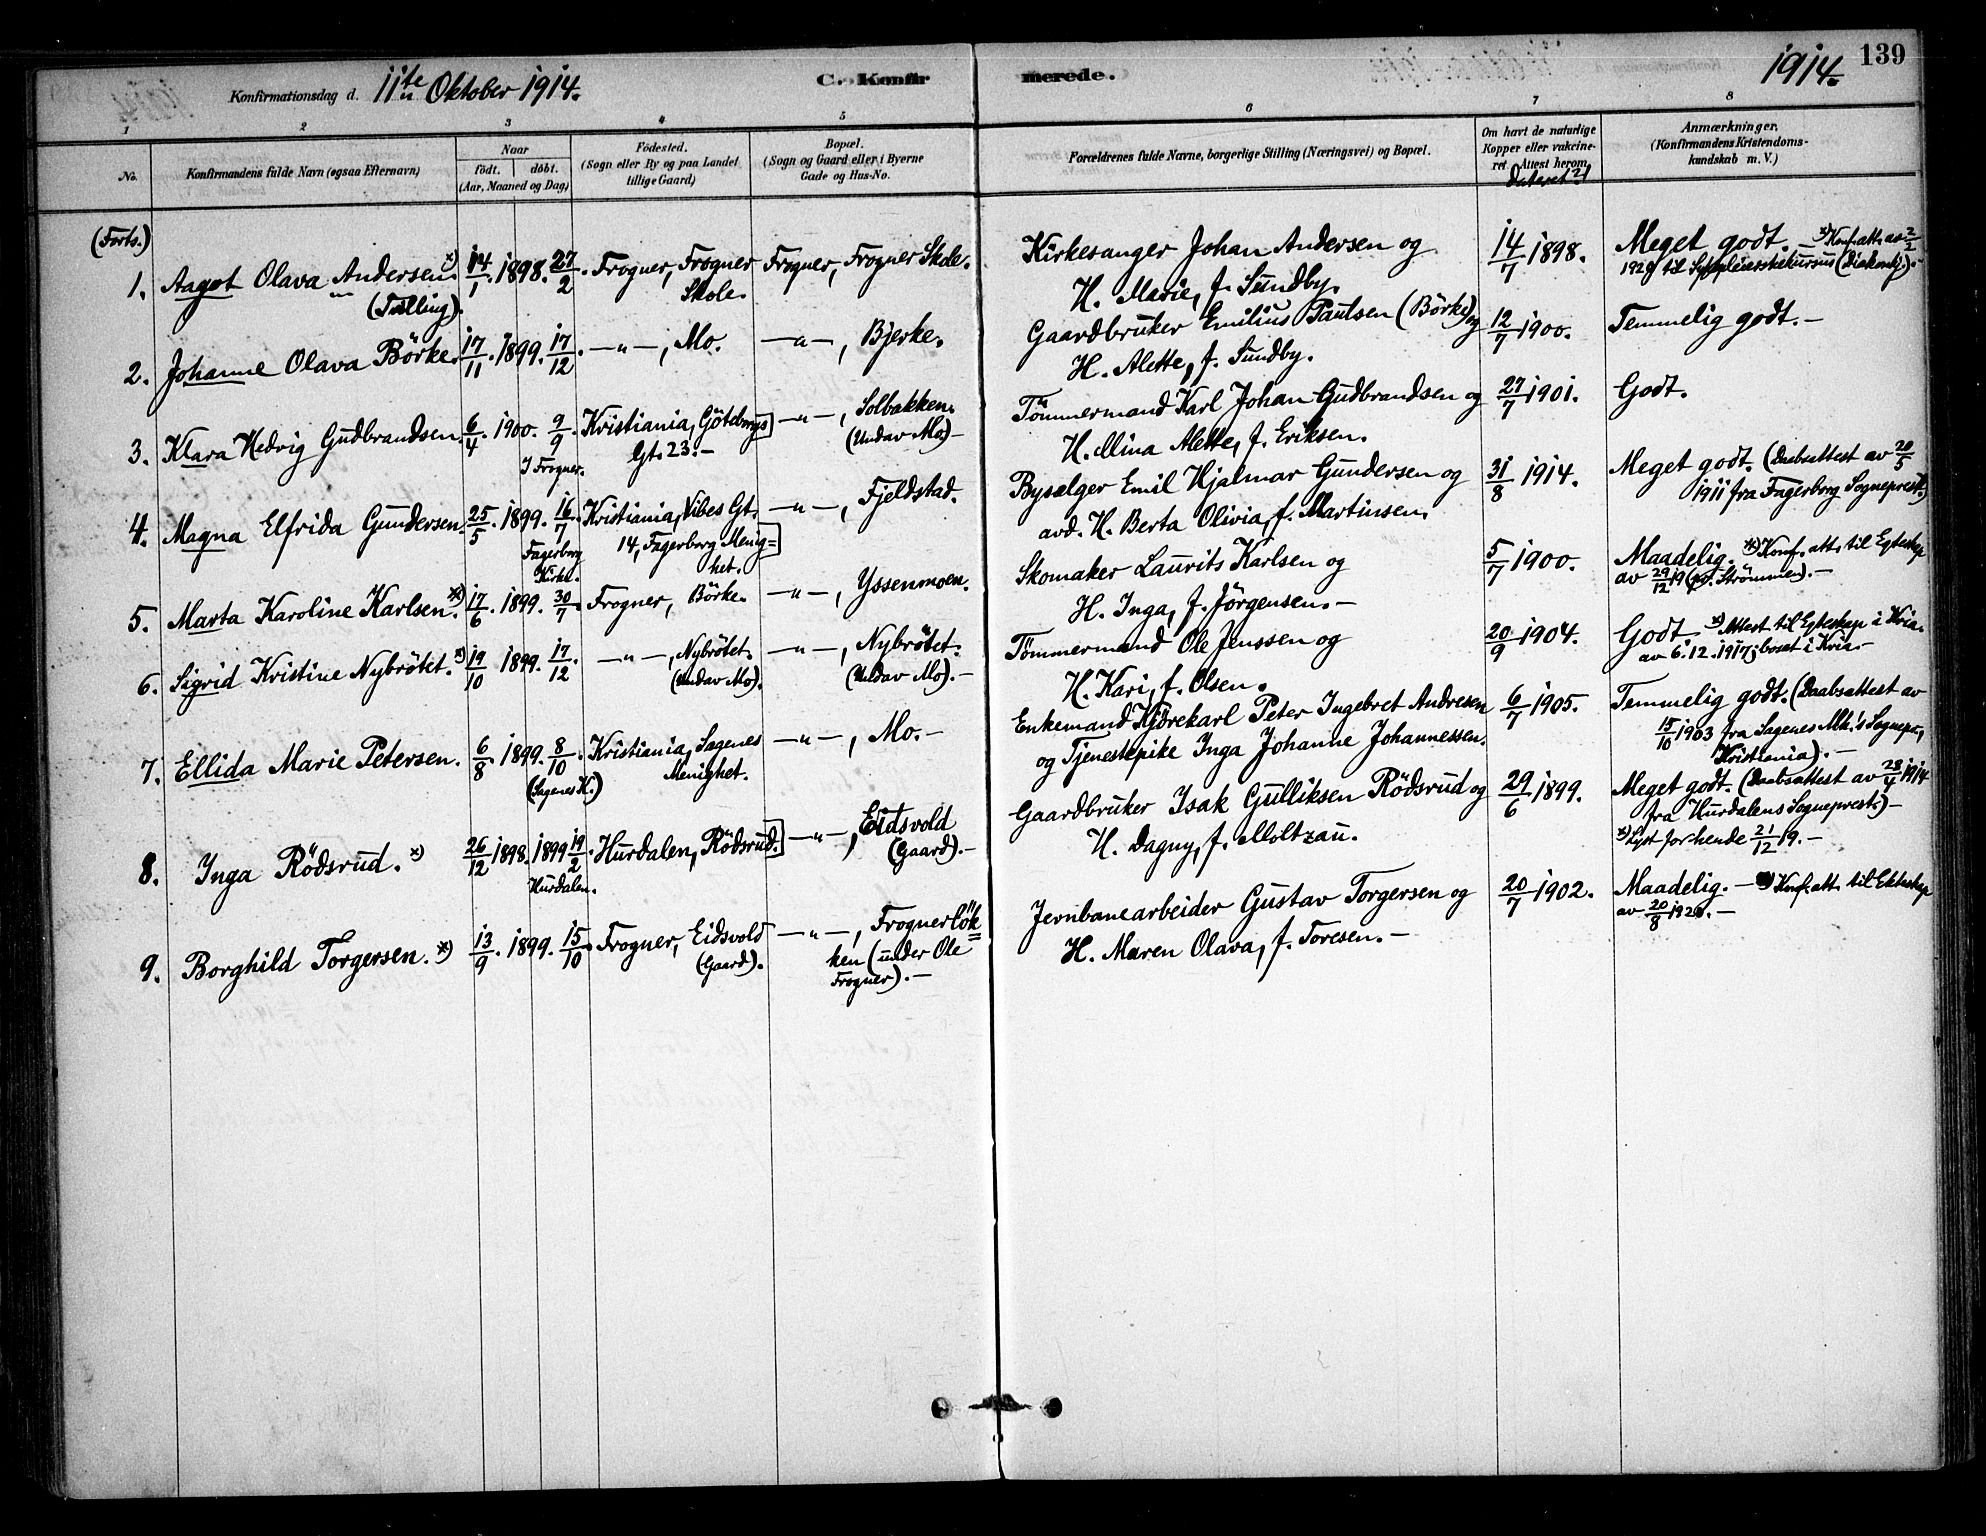 11te Oktober 1914.
Konfirmationsdag d.
C. Konfirmerede.
1914.
139
1 2 3 4 5 6 7 8
No.
Konfirmandens fulde Navn (ogsaa Efternavn)
Naar
født. døbt.
(Aar, Maaned og Dag)
Fødested.
(Sogn eller By og paa Landet
tillige Gaard)
Bopæl.
(Sogn og Gaard eller i Byerne
Gade og Hus-No.
Forældrenes fulde Navne, borgerlige Stilling (Næringsvei) og Bopæl.
Om havt de naturlige
Kopper eller vakcine-
ret. Attest herom,
dateret
Anmærkninger.
(Konfirmandens Kristendoms-
kundskab m. V.)
(Forts.)
1. Aagot Olava Andersen. *) 14/1 1898. 27/2. Frogner, Frogner Frogner, Frogner Skole. Kirkesanger Johan Andersen og 14/7 1898. Meget godt. — *) Konf.att. av 2/2
(Tælling). Skole. H. Marie, f. Sundby. 1929 til Sykepleierskekursus (Diakonhj.).-
2. Johanne Olava Börke. 17/11. 1899. 17/12. —"—, Mo. —"—, Bjerke. Gaardbruker Emilius Paulsen (Börke) og 12/7 1900. Temmelig godt.—
H. Alette, f. Sundby.
3. Klara Hedvig Gudbrandsen. 6/4. 1900. 9/9. Kristiania, Göteborgs —"—, Solbakken. Tömmermand Karl Johan Gudbrandsen og 27/7 1901. Godt.
I Frogner. Gt. 23.— (Und av Mo)— H. Mina Alette, f. Eriksen.
4. Magna Elfrida Gundersen. 25/5. 1899. 16/7. Kristiania, Vibes Gt. —"—, Fjeldstad. Bysælger Emil Hjalmar Gundersen og 31/8 1914. Meget godt. (Daabsattest av 20/5
Fagerborg Kirke. 14, Fagerborg Menig=
het. avd. H. Berta Olivia, f. Martinsen. 1911 fra Fagerborg Sogneprest.)
5. Marta Karoline Karlsen. *) 17/6. 1899. 30/7. Frogner, Börke. —"—, Yssenmoen. Skomaker Laurits Karlsen og 5/7 1900. Maadelig. *) Konf. att. til Egteskap
H. Inga, f. Jörgensen.— av 29/12 19 (p. Strömmen).—
6. Sigrid Kristine Nybrötet. *) 19/10 1899. 17/12. —"—, Nybrötet. —"—, Nybrötet. Tömmermand Ole Jenssen og 20/9 1904. Godt. *) Attest til Egteskap i Kria.
(Und av Mo). (Und av Mo).— H. Kari, f. Olsen. av 6.12.1917; boset i Kria.—
7. Ellida Marie Petersen. 6/8. 1899. 8/10. Kristiania, Sagenes —"—, Mo.— Enkemand Kjörekarl Peter Ingebret Andresen 6/7 1905. Temmelig godt. (Daabsattest av
(Sagenes K.) Menighet. og Tjenestepike Inga Johanne Johannessen. 15/10 1903 fra Sagenes Mk.'s Sognepr.,
Kristiania).—
8. Inga Rödsrud. *) 26/12 1898. 1899 19/2. Hurdalen, Rödsrud. —"—, Eidsvold Gaardbruker Isak Gulliksen Rödsrud og 29/6 1899. Meget godt. (Daabsattest av 28/4 1914
Hurdalen. (Gaard).— H. Dagny, f. Moltzau. fra Hurdalens Sogneprest.)—
*) Lyst for hende 21/12 19.—
9. Borghild Torgersen. *) 13/9. 1899. 15/10. Frogner, Eidsvold —"—, Frognerlök= Jernbanearbeider Gustav Torgersen og 20/7 1902. Maadelig.— *) Konf.att. til Ekteskap
(Gaard). ken (under Ole H. Maren Olava, f. Toresen.— av 20/8 1920.—
Frogner).—